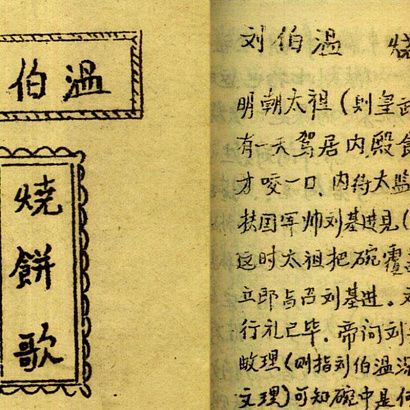 伯溫
燒餅歌
刘伯温
明朝太祖(则皇
有一天驾居内殿食
才咬一口、内侍太监
扶国军帅刘基进见(
这时太祖把碗覆
立即与召刘基进。
行礼已毕。帝问刘
敢理(则指刘伯温深
文理)可知碗中是何